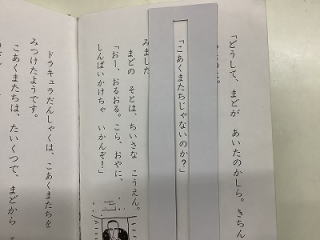 「どうして、まどが　あいたのかしら。きちん
「こあくまたちじゃないのか？」
みました
まどの　そとは、ちいさな　こうえん。
「おー、おるおる。こら、おやに、
しんぱいかけちゃ　いかんぞ！」
ドラキュラだんしゃくは、こあくまたちを
みつけたようです。
こあくまたちは、たいくつで、まどから